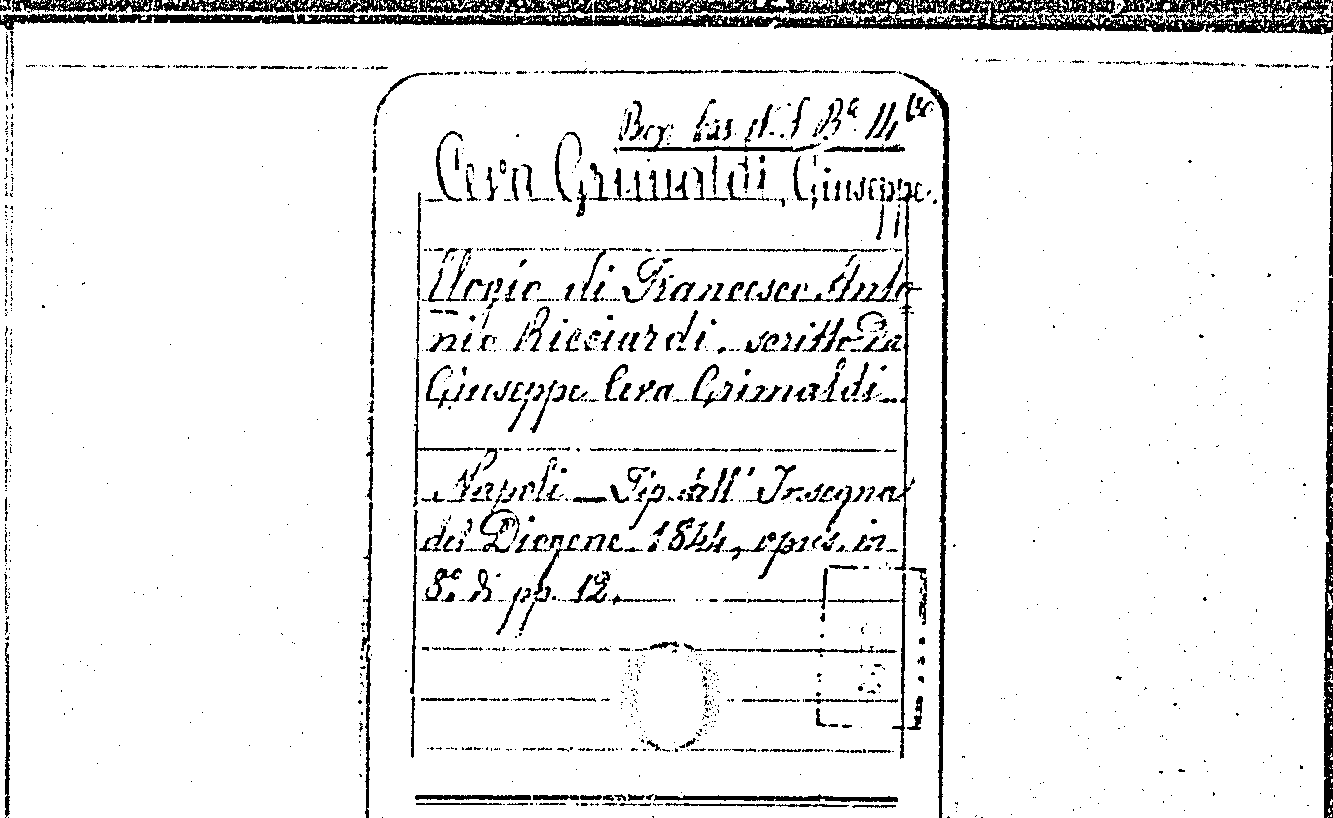 Ceva Grimaldi, Giuseppe.
Elogio di Francesco Anto
nio Ricciardi. scritto da
Giuseppe Ceva Grimaldi_
Napoli _ Tip. dall' Insegna
del Diogene 1844, opus. in
8.° di pp. 12.